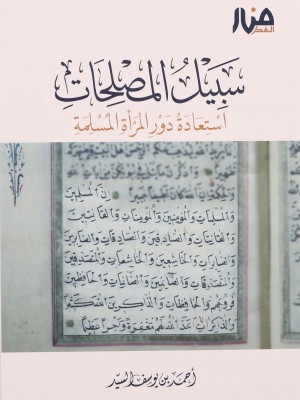 منار
الفكر
سَبِيلُ المُصْلِحَاتِ
اسْتِعَادَةُ دَوْرِ المَرْأَةِ المُسْلِمَةِ
إِنَّ الْمُسْلِمِينَ
وَالْمُسْلِمَاتِ وَالْمُؤْمِنِينَ وَالْمُؤْمِنَاتِ وَالْقَانِتِينَ
وَالْقَانِتَاتِ وَالصَّادِقِينَ وَالصَّادِقَاتِ وَالصَّابِرِينَ
وَالصَّابِرَاتِ وَالْخَاشِعِينَ وَالْخَاشِعَاتِ وَالْمُتَصَدِّقِينَ
وَالْمُتَصَدِّقَاتِ وَالصَّائِمِينَ وَالصَّائِمَاتِ وَالْحَافِظِينَ
فُرُوجَهُمْ وَالْحَافِظَاتِ وَالذَّاكِرِينَ اللَّهَ كَثِيرًا
وَالذَّاكِرَاتِ أَعَدَّ اللَّهُ لَهُمْ مَغْفِرَةً وَأَجْرًا عَظِيمًا
أحمد بن يوسف السيد